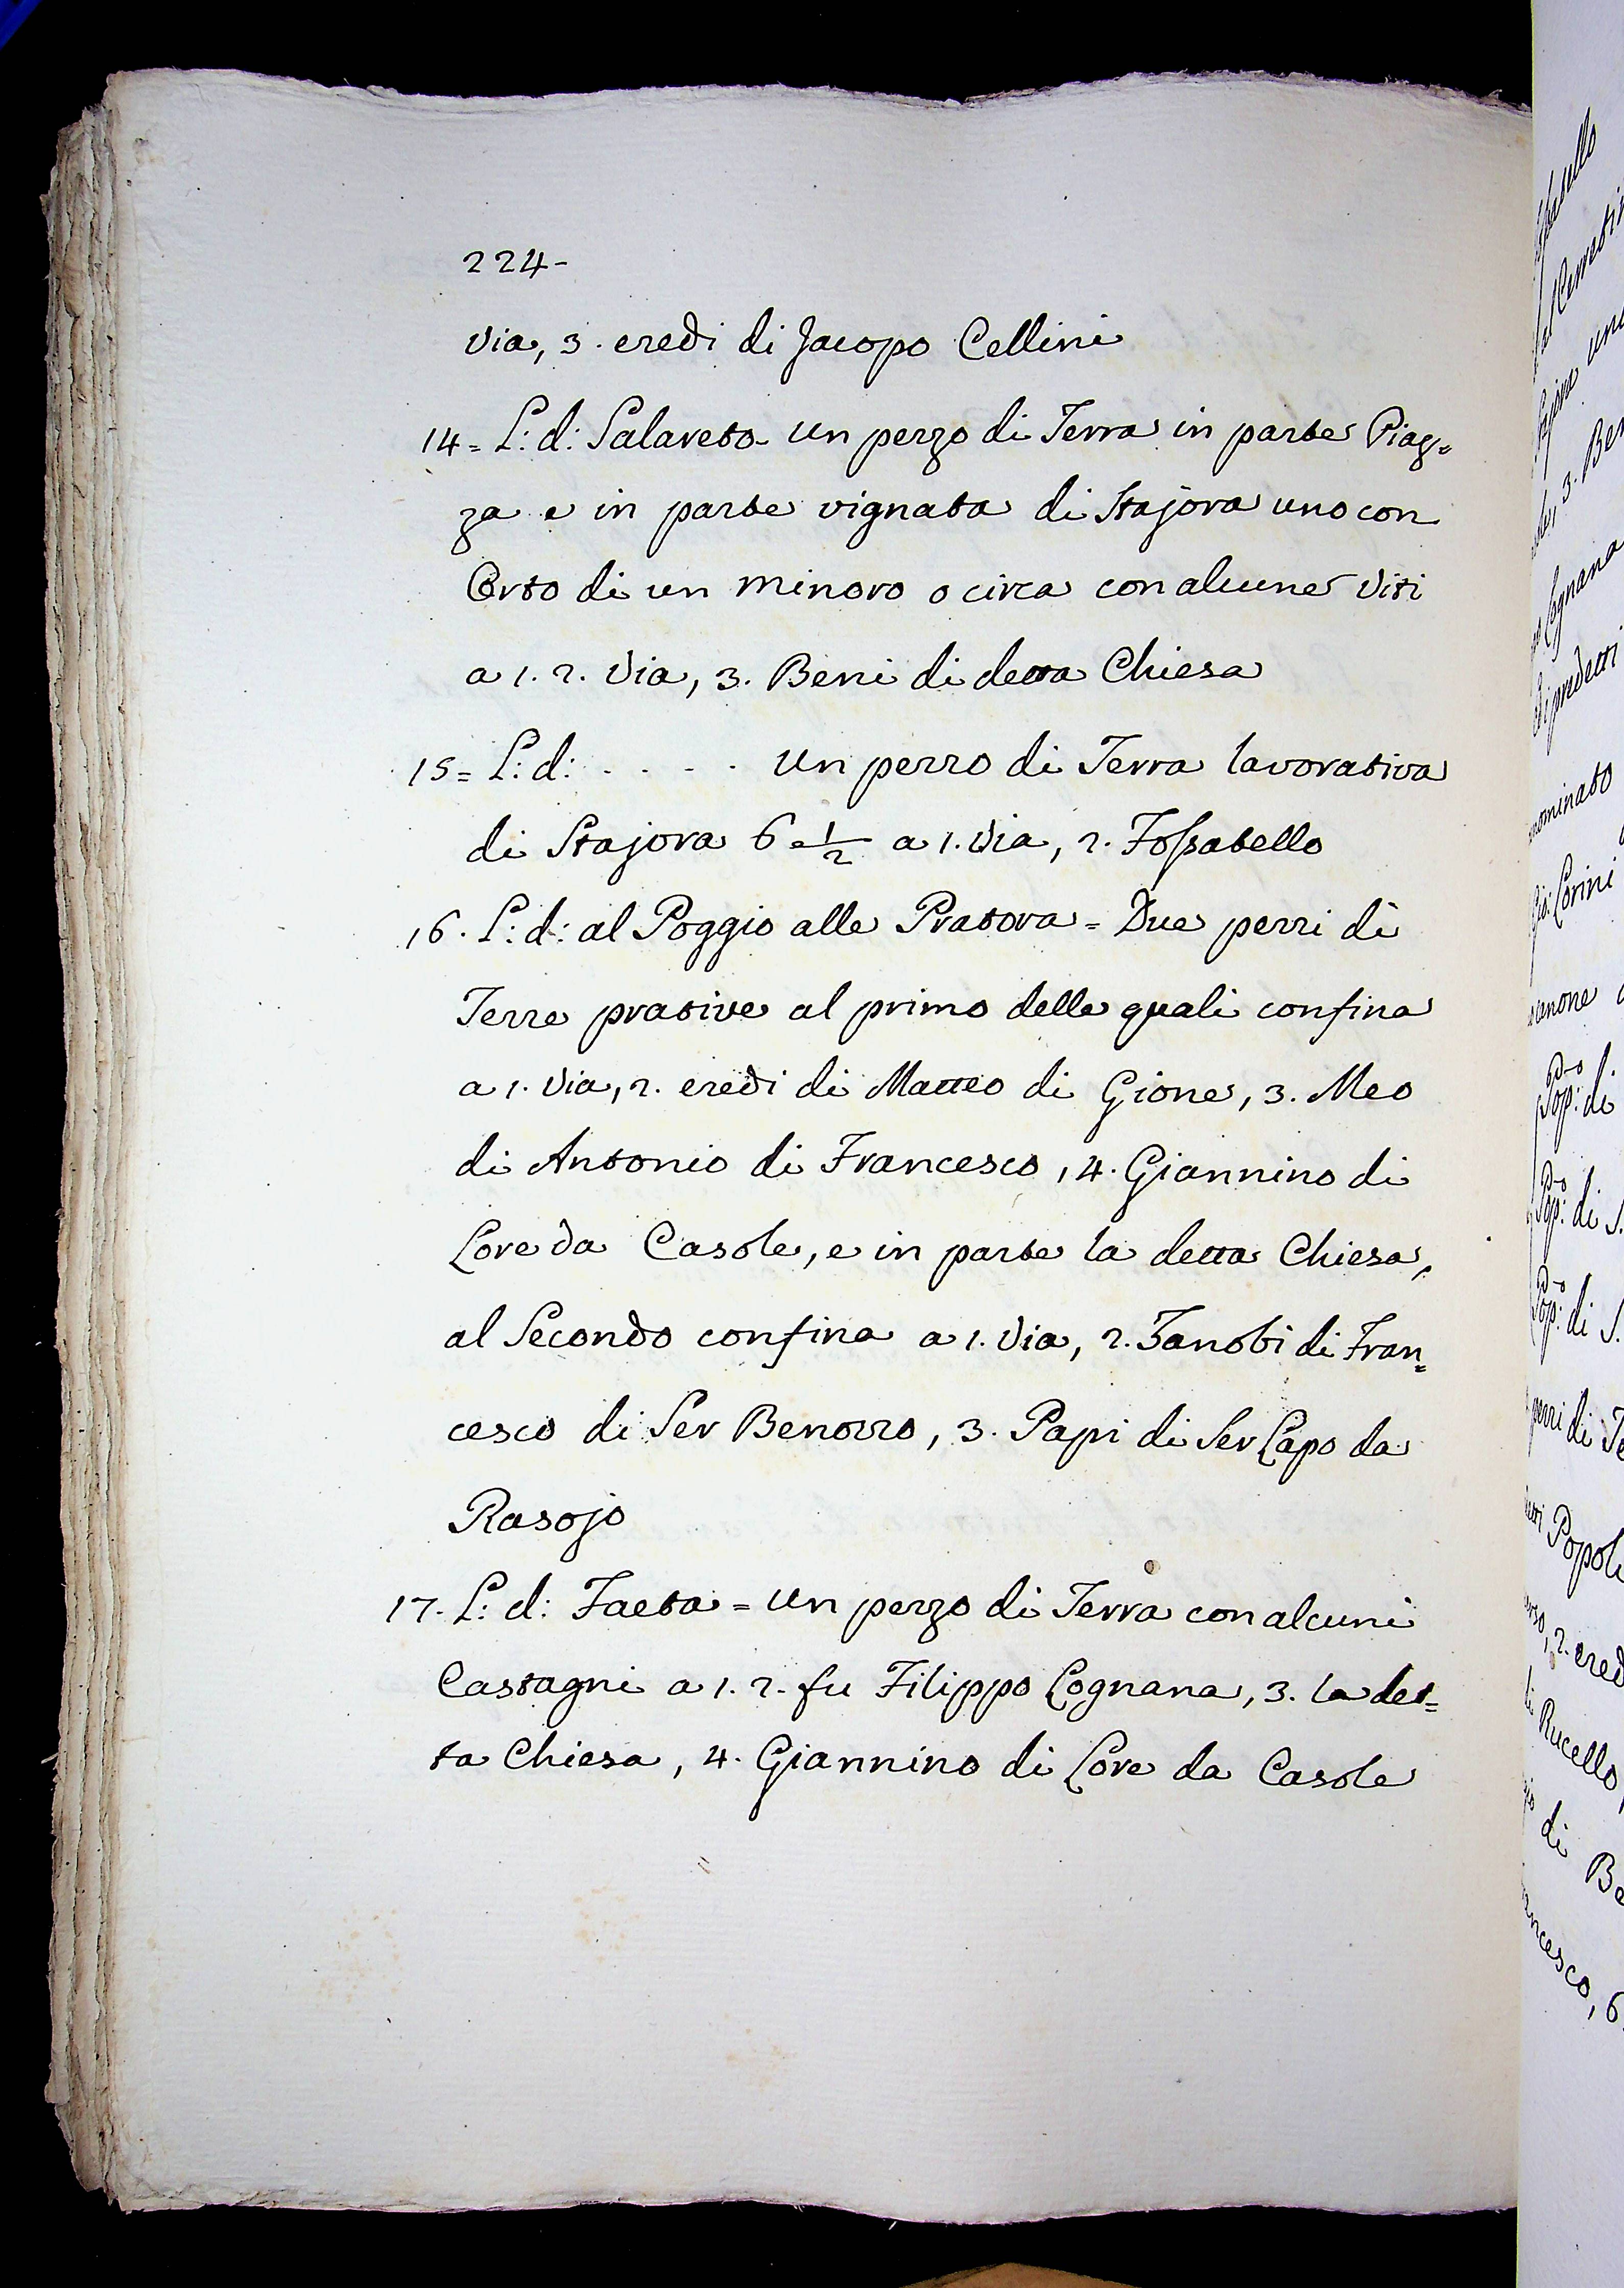 224-
Via, 3. eredi di Jacopo Cellini
14= L: d: Salareto un pezzo di Terra in parte Piaz=
za e in parte vignata di Stajora uno con
Orto di un minoro o circa con alcune Viti
a 1. 2. Via, 3. Beni di detta Chiesa
15= L: d: . . . . . Un pezzo di Terra lavorativa
di Stajora 6 1/2 a 1. Via, 2. Fossatello
16. L: d: al Poggio alle Pratora = Due pezzi di
Terre prative al primo delle quali confina
a 1. Via, 2. eredi di Matteo di Gione, 3. Meo
di Antonio di Francesco, 4. Giannino di
Lore da Casole, e in parte la detta Chiesa,
al Secondo confina a 1. Via, 2. Zanobi di Fran=
cesco di Ser Benozzo, 3. Papi di Ser Lapo da
Rasojo
17. L: d: Faeta = Un pezzo di Terra con alcuni
Castagni a 1. 2. fu Filippo Cognana, 3. la det=
ta Chiesa, 4. Giannino di Lore da Casole